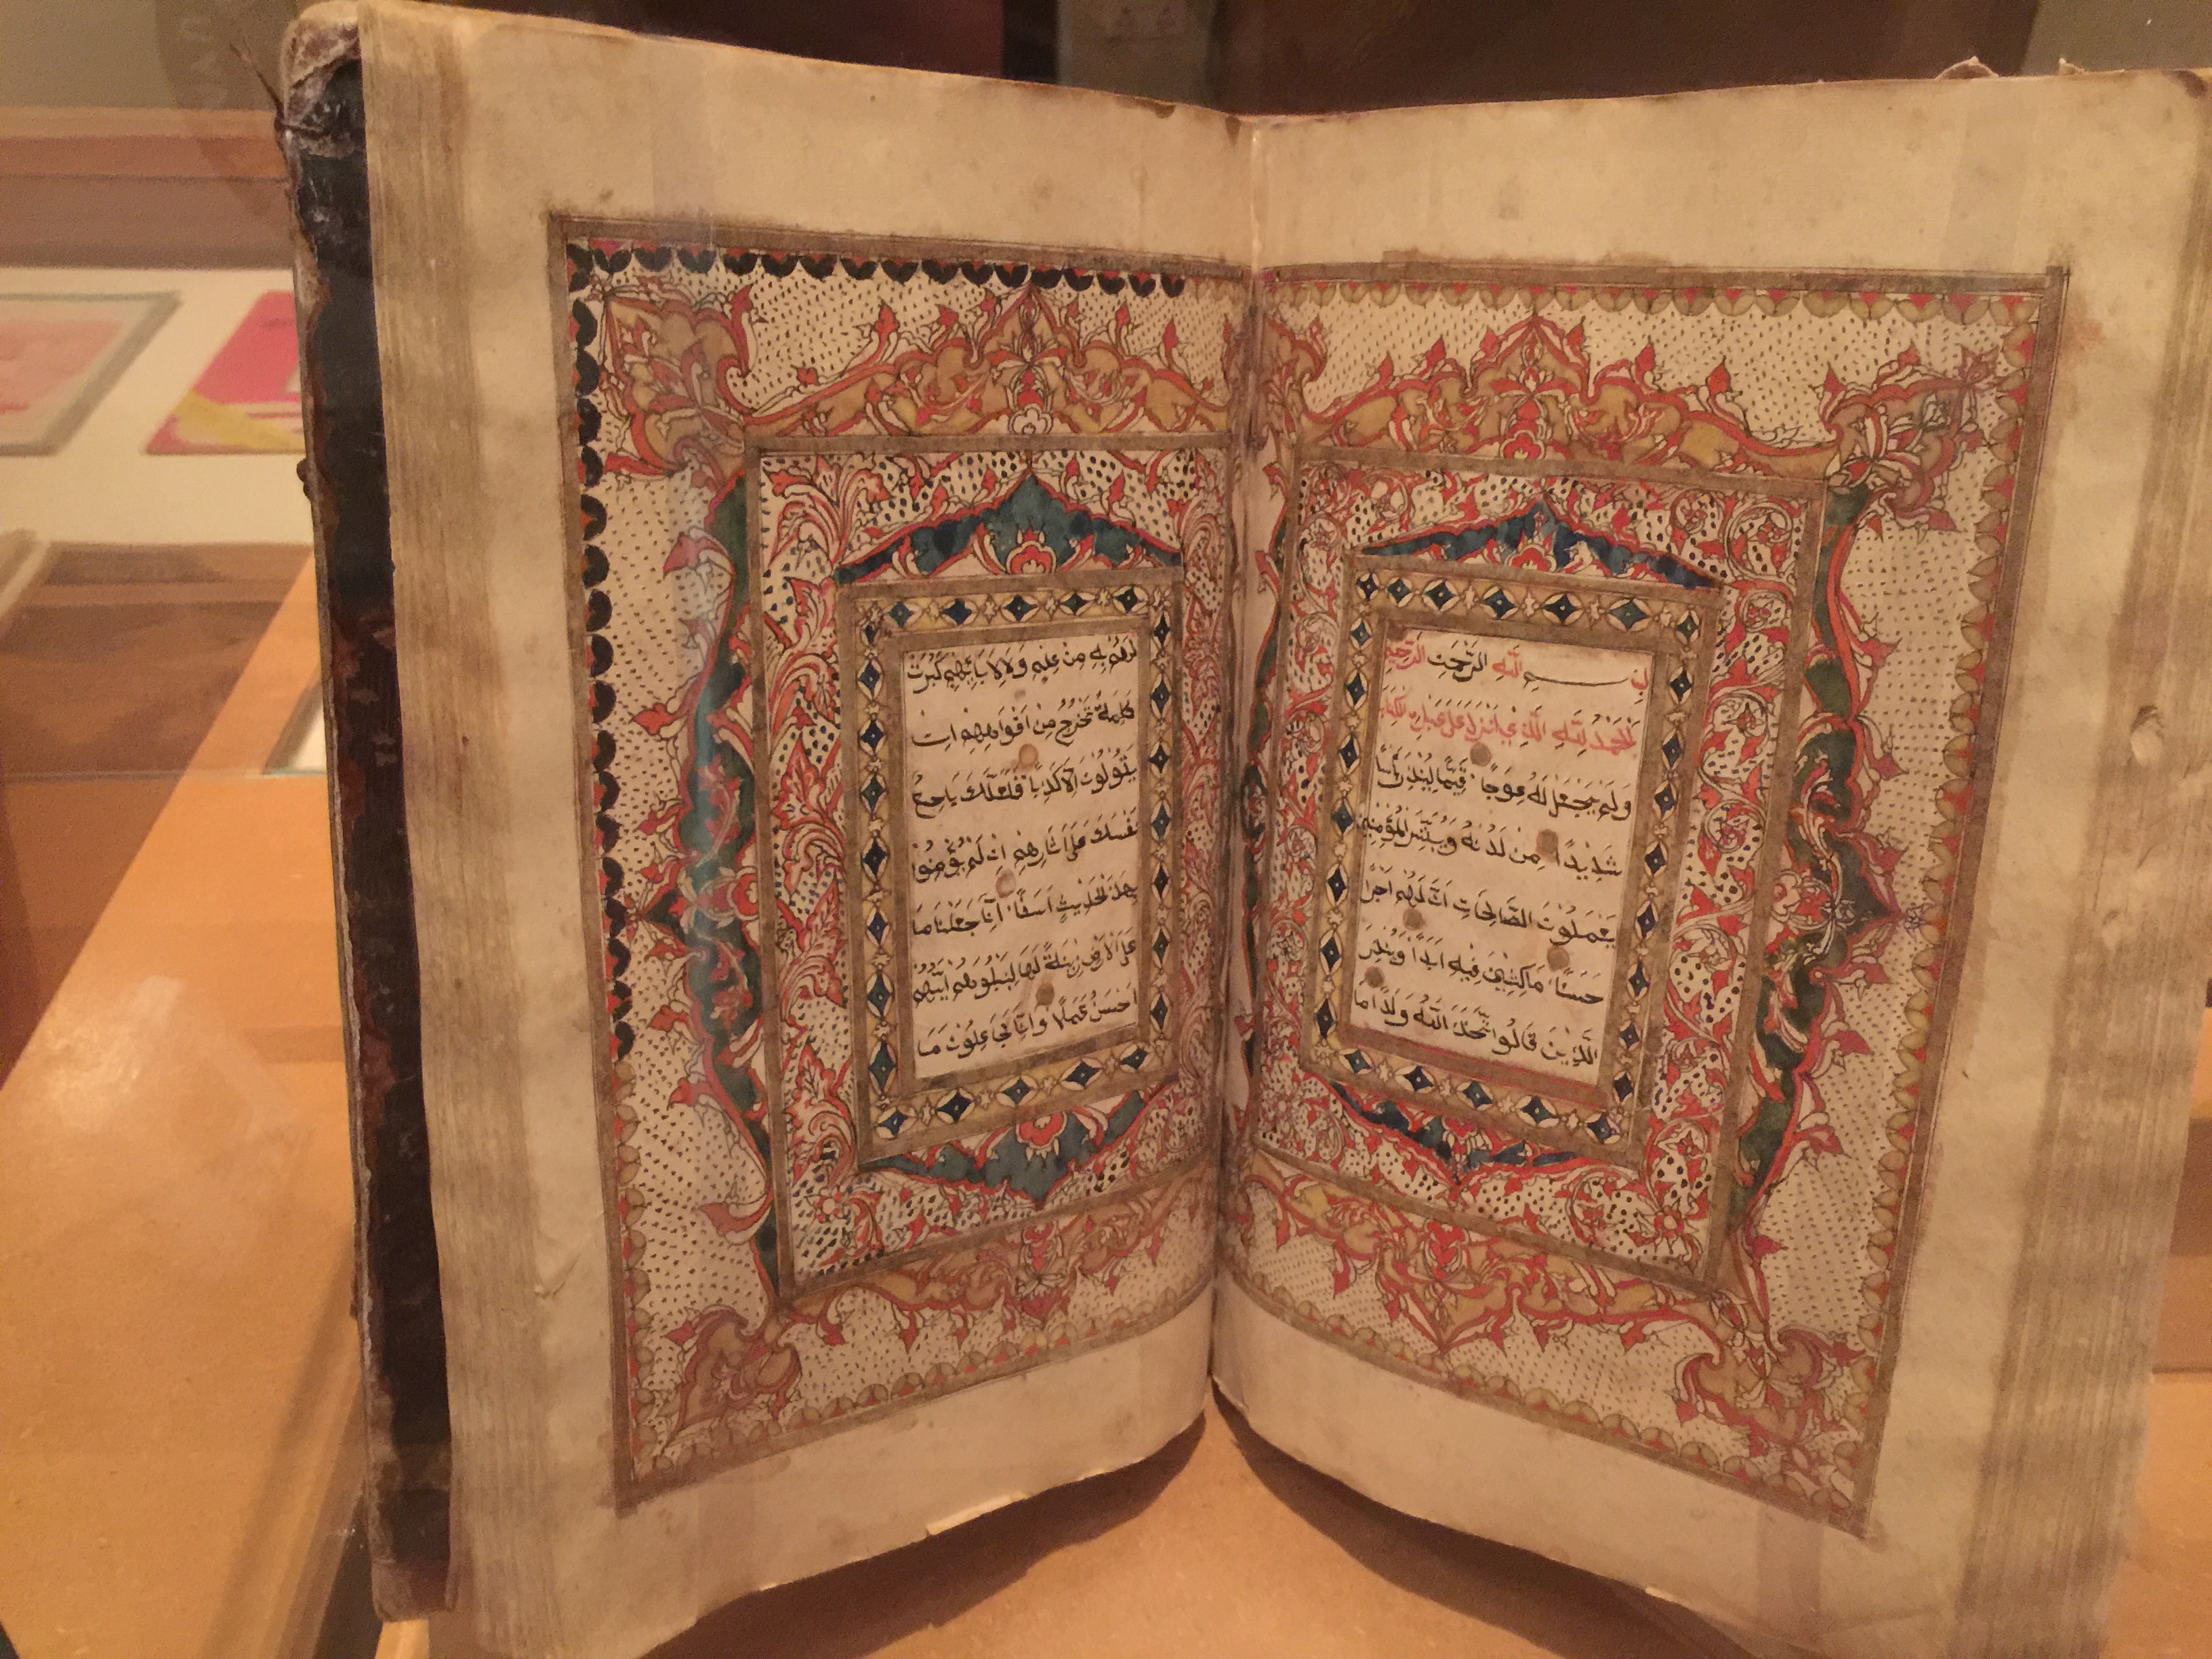 بسم الله الرحمن الرحيم
الحمد لله الذي انزل على عبده الكتاب
ولم يجعل له عوجا قيما لينذر باسا
شديدا من لدنه ويبشر المؤمنين
يعملون الصالحات ان لهم اجرا
حسنا ماكثين فيه ابدا وينذر
الذين قالوا اتخذ الله ولدا ما
لهم به من علم ولا لابائهم كبرت
كلمة تخرج من افواههم ان
يقولون الا كذبا فلعلك باخع
نفسك على اثارهم ان لم يؤمنوا
بهذا الحديث اسفا انا جعلنا ما
على الارض زينة لها لنبلوهم ايهم
احسن عملا وانا لجاعلون ما